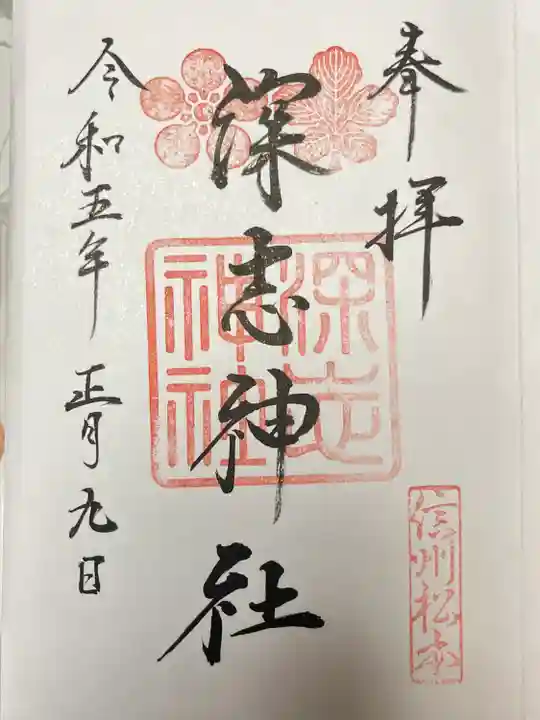 奉拝
信州松本
深志神社
深志
神社
令和五年 正月九日